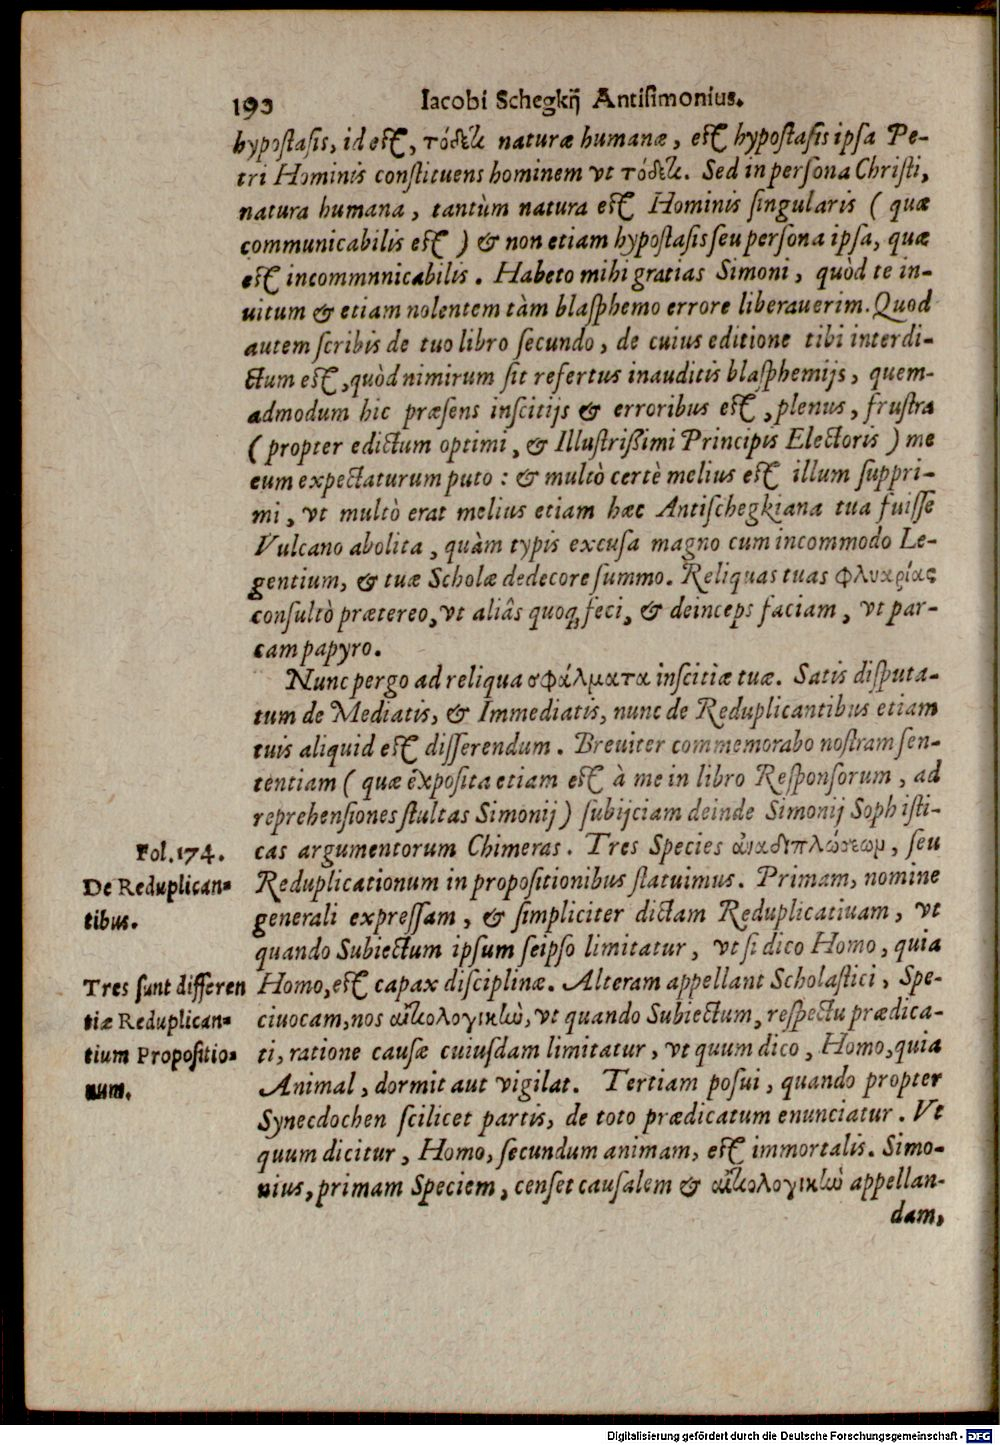 190 Iacobi Schegkij Antisimonius.
hypostasis, id est, τόδε τι naturæ humanæ, est hypostasis ipsa Pe-
tri Hominis constituens hominem vt τόδε τι. Sed in persona Christi,
natura humana, tantùm natura est Hominis singularis ( quæ
communicabilis est ) & non etiam hypostasis seu persona ipsa, quæ
est incommnnicabilis. Habeto mihi gratias Simoni, quòd te in-
uitum & etiam nolentem tàm blasphemo errore liberauerim. Quod
autem scribis de tuo libro secundo, de cuius editione tibi interdi-
ctum est, quòd nimirum sit refertus inauditis blasphemijs, quem-
admodum hic præsens inscitijs & erroribus est, plenus, frustra
( propter edictum optimi, & Illustrißimi Principis Electoris ) me
eum expectaturum puto : & multò certè melius est illum suppri-
mi, vt multò erat melius etiam hæc Antischegkiana tua fuisse
Vulcano abolita, quàm typis excusa magno cum incommodo Le-
gentium, & tuæ Scholæ dedecore summo. Reliquas tuas φλυαρίας
consultò prætereo, vt aliâs quoq; feci, & deinceps faciam, vt par-
cam papyro.
Nunc pergo ad reliqua σφάλματα inscitiæ tuæ. Satis disputa-
tum de Mediatis, & Immediatis, nunc de Reduplicantibus etiam
tuis aliquid est disserendum. Breuiter commemorabo nostram sen-
tentiam ( quæ exposita etiam est à me in libro Responsorum, ad
reprehensiones stultas Simonij ) subijciam deinde Simonij Sophisti-
Fol. 174. cas argumentorum Chimeras. Tres Species ἀναδιπλώσεων, seu
De Reduplican- Reduplicationum in propositionibus statuimus. Primam, nomine
tibus. generali expressam, & simpliciter dictam Reduplicatiuam, vt
quando Subiectum ipsum seipso limitatur, vt si dico Homo, quia
Tres sunt differen Homo, est capax disciplinæ. Alteram appellant Scholastici, Spe-
tiæ Reduplican- ciuocam, nos αἰτιολογικὼ, vt quando Subiectum, respectu prædica-
tium Propositio- ti, ratione causæ cuiusdam limitatur, vt quum dico, Homo, quia
num. Animal, dormit aut vigilat. Tertiam posui, quando propter
Synecdochen scilicet partis, de toto prædicatum enunciatur. Vt
quum dicitur, Homo, secundum animam, est immortalis. Simo-
nius, primam Speciem, censet causalem & αἰτιολογικὼ appellan-
dam,
Digitalisierung gefördert durch die Deutsche Forschungsgemeinschaft - DFG